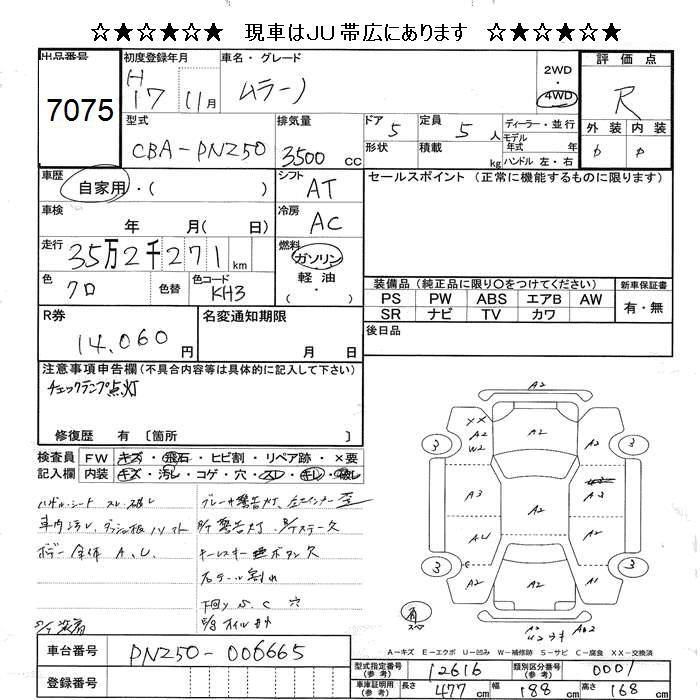 ☆★☆★☆★ 現車はJU帯広にあります ☆★☆★☆★
出品番号
7075
初度登録年月
H 17 11月
車名・グレード
ムラーノ
2WD
4WD
評価点
R
外装 内装
型式
CBA-PNZ50
排気量
3500 cc
ドア 5
形状
定員 5 人
積載 kg
ディーラー・並行
モデル年式 年
ハンドル 左・右
車歴
自家用・( )
シフト
AT
セールスポイント (正常に機能するものに限ります)
車検
年 月( 日)
冷房
AC
走行
35万2千271km
燃料
ガソリン
軽油
・
( )
色
クロ
色替
色コード
KH3
装備品 (純正品に限り○をつけてください)
PS PW ABS エアB AW
SR ナビ TV カワ
新車保証書
有・無
後日品
R券
14,060円
名変通知期限
月 日
注意事項申告欄 (不具合内容等は具体的に記入して下さい)
チェックランプ点灯
修復歴 有 〔箇所 〕
検査員記入欄
FW キズ・飛石・ヒビ割・リペア跡・×要
内装 キズ・汚レ・コゲ・穴・スレ・キレ・破レ
ハンドル・シート スレ・破レ
車内汚レ、ダッシュ板ハリスト
ボデー全体 A、U
ブレーキ警告灯、左コインナー歪
キーレスキー ボタン欠
右テール割れ
下回り S、C 穴
A2
XX
A2
W2
A2
3
3
A3
AU
A2
C
A2
A2
A1
3
3
A-キズ E-エクボ U-凹み W-補修跡 S-サビ C-腐食 XX-交換済
車台番号
PNZ50-006665
登録番号
型式指定番号(参考)
12616
類別区分番号(参考)
0001
車庫証明用(参考)
長さ 477cm 幅 188cm 高さ 168cm